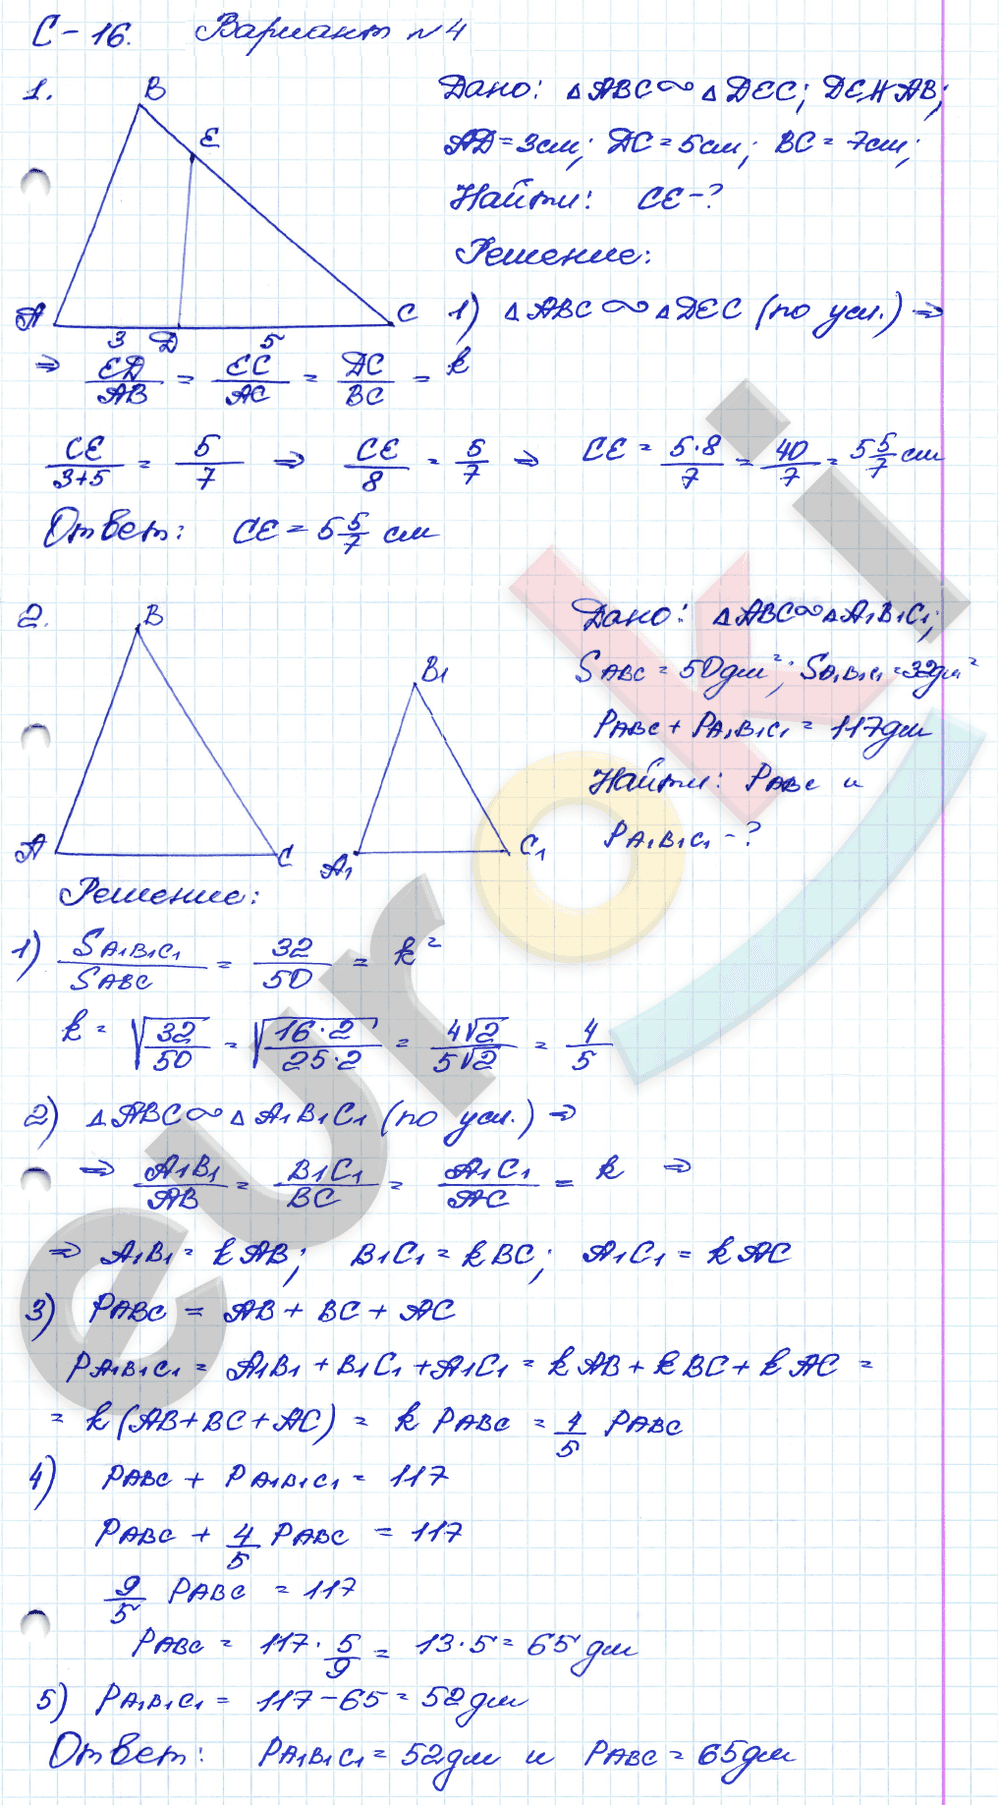 С-16. Вариант №4
1.
B
E
A
3
D
5
C
Дано: △ABC∾△DEC; DE∦AB;
AD=3см; DC=5см; BC=7см;
Найти: CE-?
Решение:
1) △ABC∾△DEC (по усл.) ⇒
⇒ ED/AB = EC/AC = DC/BC = k
CE/3+5 = 5/7 ⇒ CE/8 = 5/7 ⇒ CE = 5·8/7 = 40/7 = 5 5/7 см
Ответ: CE = 5 5/7 см
2.
B
A
C
B₁
A₁
C₁
Дано: △ABC∾△A₁B₁C₁;
SABC = 50дм²; SA₁B₁C₁=32дм²
PABC + PA₁B₁C₁ = 117дм
Найти: PABC и
PA₁B₁C₁ -?
Решение:
1) SA₁B₁C₁/SABC = 32/50 = k²
k = √32/50 = √16·2/25·2 = 4√2/5√2 = 4/5
2) △ABC∾△A₁B₁C₁ (по усл.) ⇒
⇒ A₁B₁/AB = B₁C₁/BC = A₁C₁/AC = k ⇒
⇒ A₁B₁= kAB; B₁C₁ = kBC; A₁C₁ = kAC
3) PABC = AB + BC + AC
PA₁B₁C₁ = A₁B₁ + B₁C₁ + A₁C₁ = kAB + kBC + kAC =
= k(AB+BC+AC) = k PABC = 4/5 PABC
4) PABC + PA₁B₁C₁ = 117
PABC + 4/5 PABC = 117
9/5 PABC = 117
PABC = 117 · 5/9 = 13·5 = 65 дм
5) PA₁B₁C₁ = 117-65 = 52дм
Ответ: PA₁B₁C₁ = 52дм и PABC = 65дм
euroki